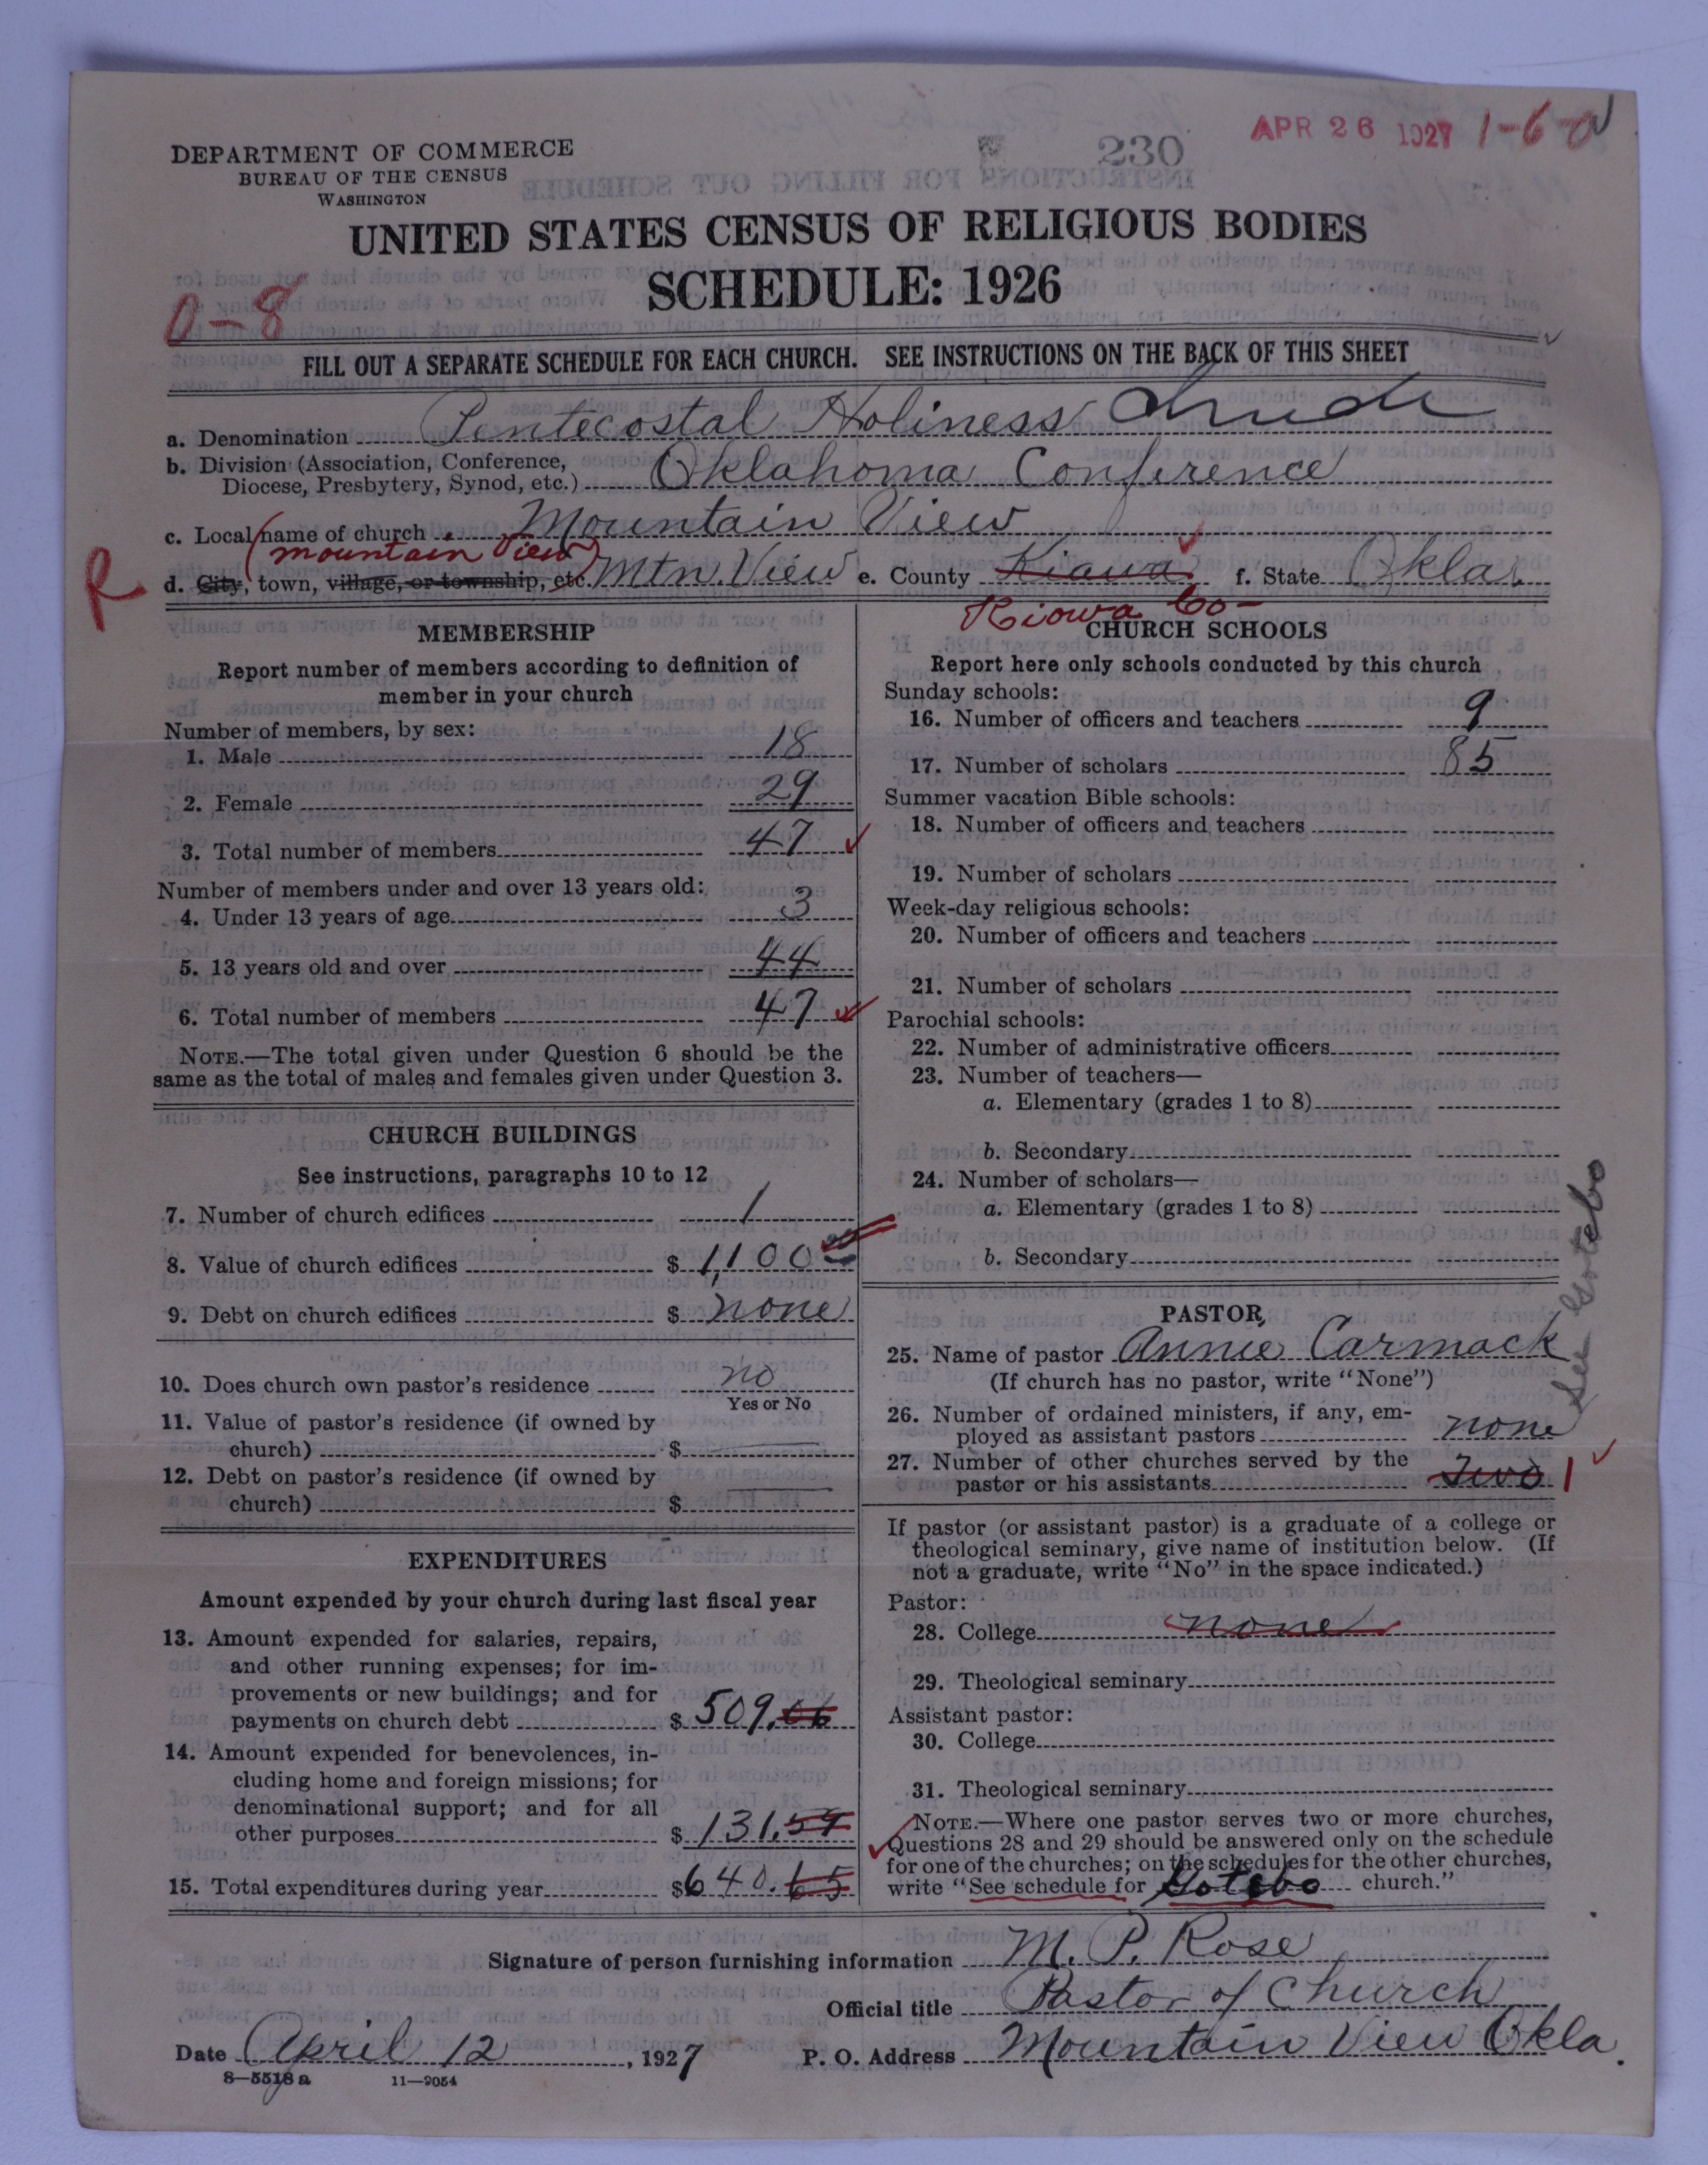 APR 26 1927 1-6-
230
DEPARTMENT OF COMMERCE
BUREAU OF THE CENSUS
WASHINGTON
UNITED STATES CENSUS OF RELIGIOUS BODIES
SCHEDULE: 1926
0-8
FILL OUT A SEPARATE SCHEDULE FOR EACH CHURCH. SEE INSTRUCTIONS ON THE BACK OF THIS SHEET
a. Denomination Pentecostal Holiness
b. Division (Association, Conference, Diocese, Presbytery, Synod, etc.) Oklahoma Conference
c. Local name of church Mountain View
(Mountain View)
R
d. City, town, village, or township, etc. Mtn. View e. County Kiawa f. State Okla.
Kiowa Co-
MEMBERSHIP
Report number of members according to definition of
member in your church
Number of members, by sex:
1. Male 18
2. Female 29
3. Total number of members 47
Number of members under and over 13 years old:
4. Under 13 years of age 3
5. 13 years old and over 44
6. Total number of members 47
NOTE.—The total given under Question 6 should be the
same as the total of males and females given under Question 3.
CHURCH BUILDINGS
See instructions, paragraphs 10 to 12
7. Number of church edifices 1
8. Value of church edifices $ 1,100
9. Debt on church edifices $ none
10. Does church own pastor's residence no
Yes or No
11. Value of pastor's residence (if owned by
church) $
12. Debt on pastor's residence (if owned by
church) $
EXPENDITURES
Amount expended by your church during last fiscal year
13. Amount expended for salaries, repairs,
and other running expenses; for im-
provements or new buildings; and for
payments on church debt $ 509.06
14. Amount expended for benevolences, in-
cluding home and foreign missions; for
denominational support; and for all
other purposes $ 131.59
15. Total expenditures during year $ 640.65
CHURCH SCHOOLS
Report here only schools conducted by this church
Sunday schools:
16. Number of officers and teachers 9
17. Number of scholars 85
Summer vacation Bible schools:
18. Number of officers and teachers
19. Number of scholars
Week-day religious schools:
20. Number of officers and teachers
21. Number of scholars
Parochial schools:
22. Number of administrative officers
23. Number of teachers—
a. Elementary (grades 1 to 8)
b. Secondary
24. Number of scholars—
a. Elementary (grades 1 to 8)
b. Secondary
See Gotebo
PASTOR
25. Name of pastor Annie Carmack
(If church has no pastor, write "None")
26. Number of ordained ministers, if any, em-
ployed as assistant pastors none
27. Number of other churches served by the
pastor or his assistants Two 1
If pastor (or assistant pastor) is a graduate of a college or
theological seminary, give name of institution below. (If
not a graduate, write "No" in the space indicated.)
Pastor:
28. College none
29. Theological seminary
Assistant pastor:
30. College
31. Theological seminary
NOTE.—Where one pastor serves two or more churches,
Questions 28 and 29 should be answered only on the schedule
for one of the churches; on the schedules for the other churches,
write "See schedule for Gotebo church."
Signature of person furnishing information M. P. Rose
Official title Pastor of Church
Date April 12, 1927 P. O. Address Mountain View Okla.
8—5518 a 11—9054